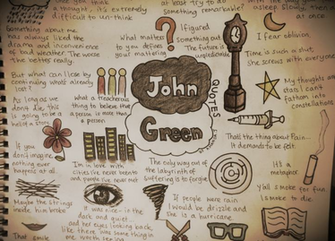 you think
a thought
extremely
difficult to un-think
at best try to
Something remarkable?
slowly, then
at once
Something about me
has always liked the
drama and inconvenience
of bad weather. The worse
the better really
What matters
to you defines
your mattering
I figured
something out.
The future is
unpredictable
I fear oblivion.
Time is such a slut.
She screws with everyone
But what can I lose by
As long as we
don't die, this
is going to be a
story
What a treacherous
thing to believe that
a person is more than
a person
John
Green
QUOTES
My thoughts are
stars I can't
fathom into
constellations
That's the thing about Pain...
It demands to be felt
If you
don't imagine,
nothing ever
happens at all
I'm in love with
cities I've never been to
and people I've never met
The only way out of
the labyrinth of
suffering is to forgive
It's a
metaphor
Maybe the strings
inside him broke
It was nice - in the
dark and quiet
and her eyes looking back,
like there was something in
me worth seeing
If people were rain
I would be drizzle and
she is a hurricane
That smile